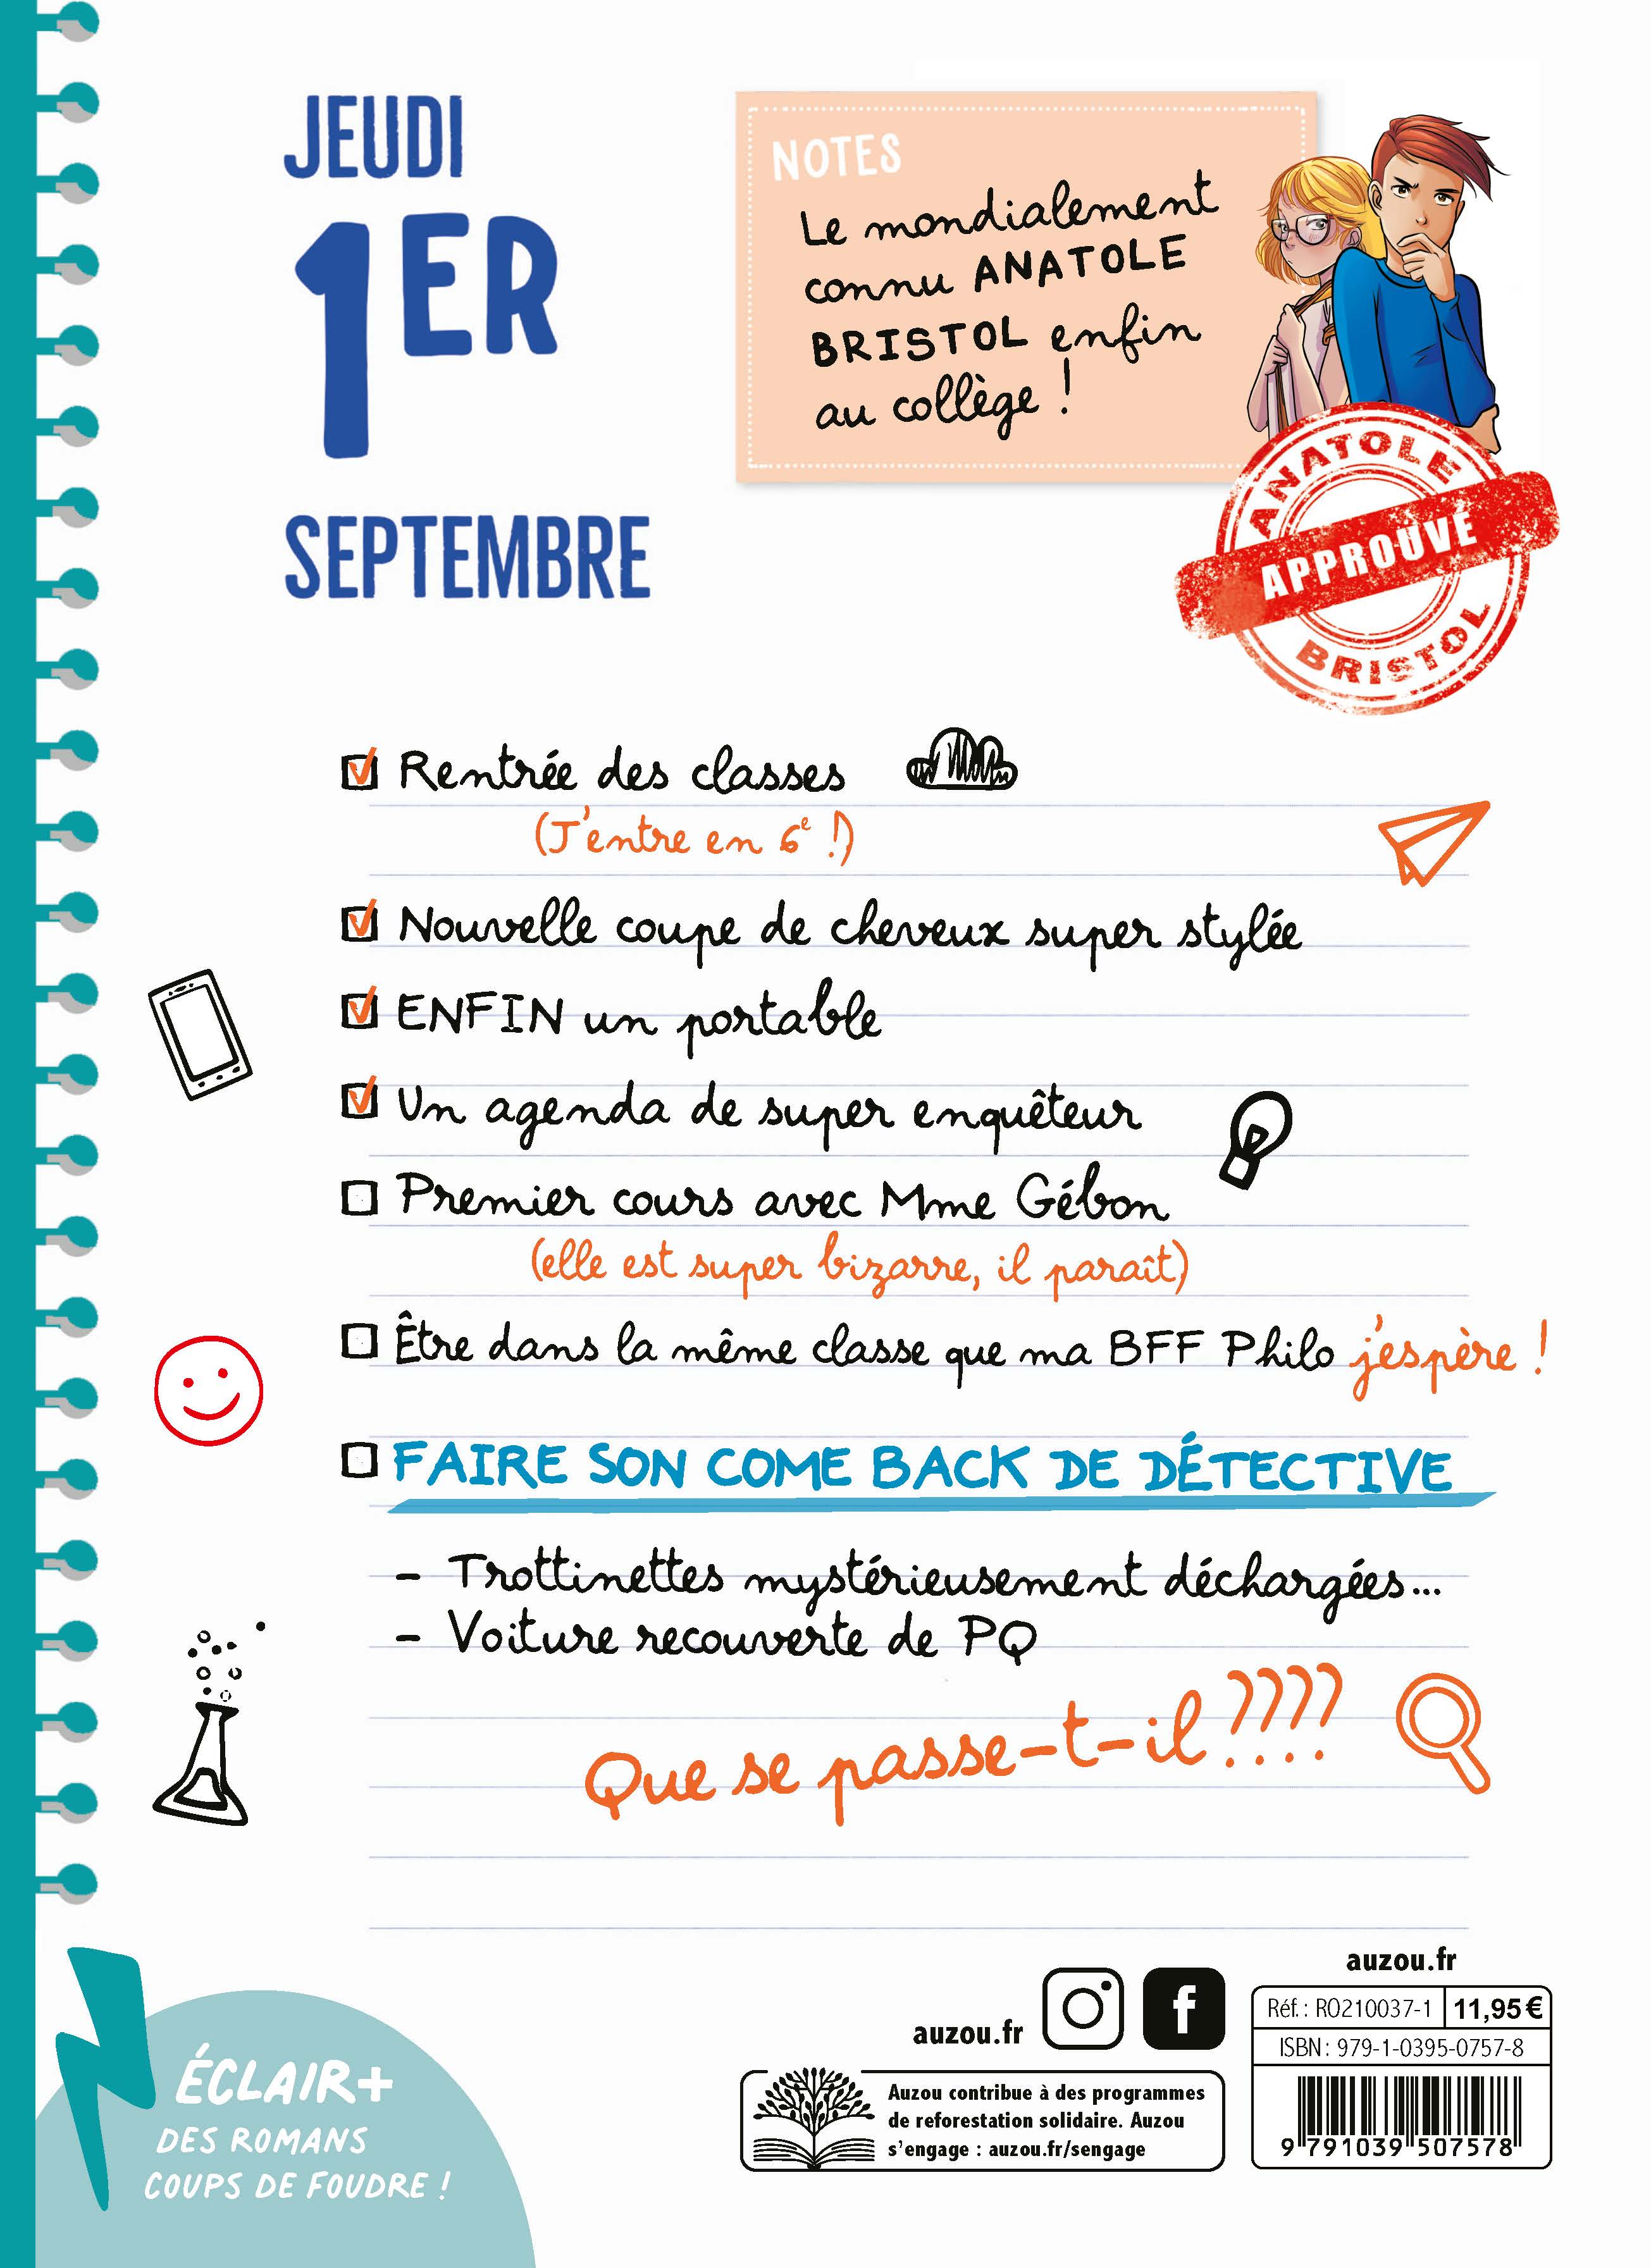 JEUDI
1ER
SEPTEMBRE
NOTES
Le mondialement
connu ANATOLE
BRISTOL enfin
au collège !
ANATOLE
APPROUVÉ
BRISTOL
Rentrée des classes
(J'entre en 6e !)
Nouvelle coupe de cheveux super stylée
ENFIN un portable
Un agenda de super enquêteur
Premier cours avec Mme Gébon
(elle est super bizarre, il paraît)
Être dans la même classe que ma BFF Philo j'espère !
FAIRE SON COME BACK DE DÉTECTIVE
- Trottinettes mystérieusement déchargées...
- Voiture recouverte de PQ
Que se passe-t-il ????
ÉCLAIR+
DES ROMANS
COUPS DE FOUDRE !
auzou.fr
f
Auzou contribue à des programmes
de reforestation solidaire. Auzou
s'engage : auzou.fr/sengage
auzou.fr
Réf. : RO210037-1 11,95 €
ISBN : 979-1-0395-0757-8
9 791039 507578